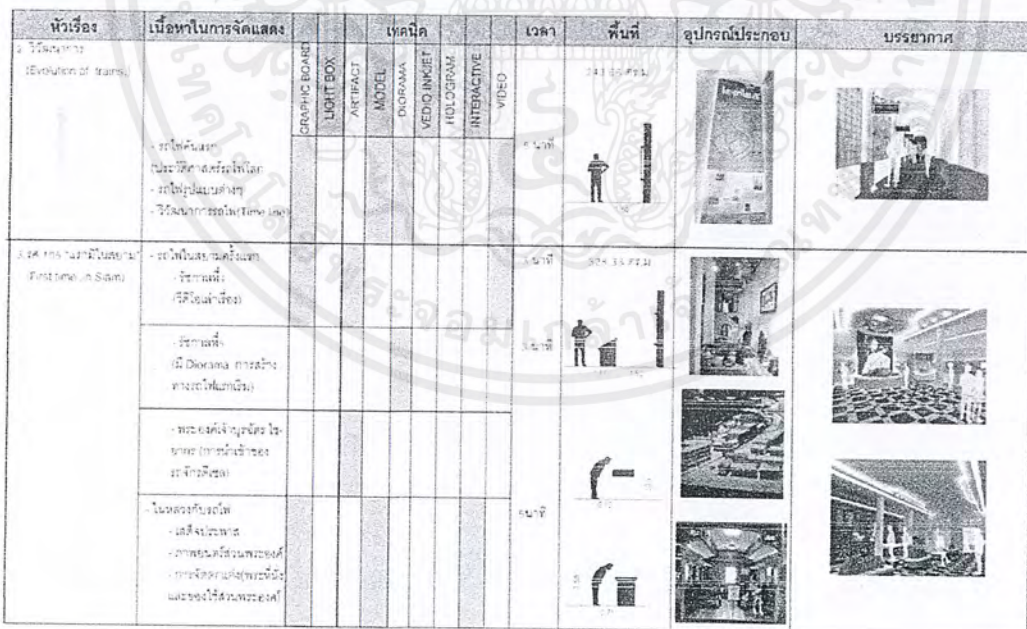 หัวเรื่อง
เนื้อหาในการจัดแสดง
เทคนิค
เวลา
พื้นที่
อุปกรณ์ประกอบ
บรรยากาศ
GRAPHIC BOARD
LIGHT BOX
ARTIFACT
MODEL
DIORAMA
VEDIO INKJET
HOLOGRAM
INTERACTIVE
VIDEO
2. วิวัฒนาการ
(Evolution of trains)
- รถไฟคันแรก
(ประวัติศาสตร์รถไฟโลก
- รถไฟรูปแบบต่างๆ
- วิวัฒนาการรถไฟ(Time line)
5 นาที
ตร.ม
(First time in Siam)
- รถไฟในสยามครั้งแรก
(วีดีโอเล่าเรื่อง)
3 นาที
328.35 ตร.ม
(มี Diorama การสร้าง
ทางรถไฟแรกเริ่ม)
3 นาที
- พระองค์เจ้าบุรฉัตร ไช-
ยากร (การนำเข้าของ
รถจักรดีเซล)
- ในหลวงกับรถไฟ
- เสด็จประพาส
- ภาพยนตร์ส่วนพระองค์
- การจัดตกแต่ง(พระที่นั่ง
และของใช้ส่วนพระองค์)
นาที